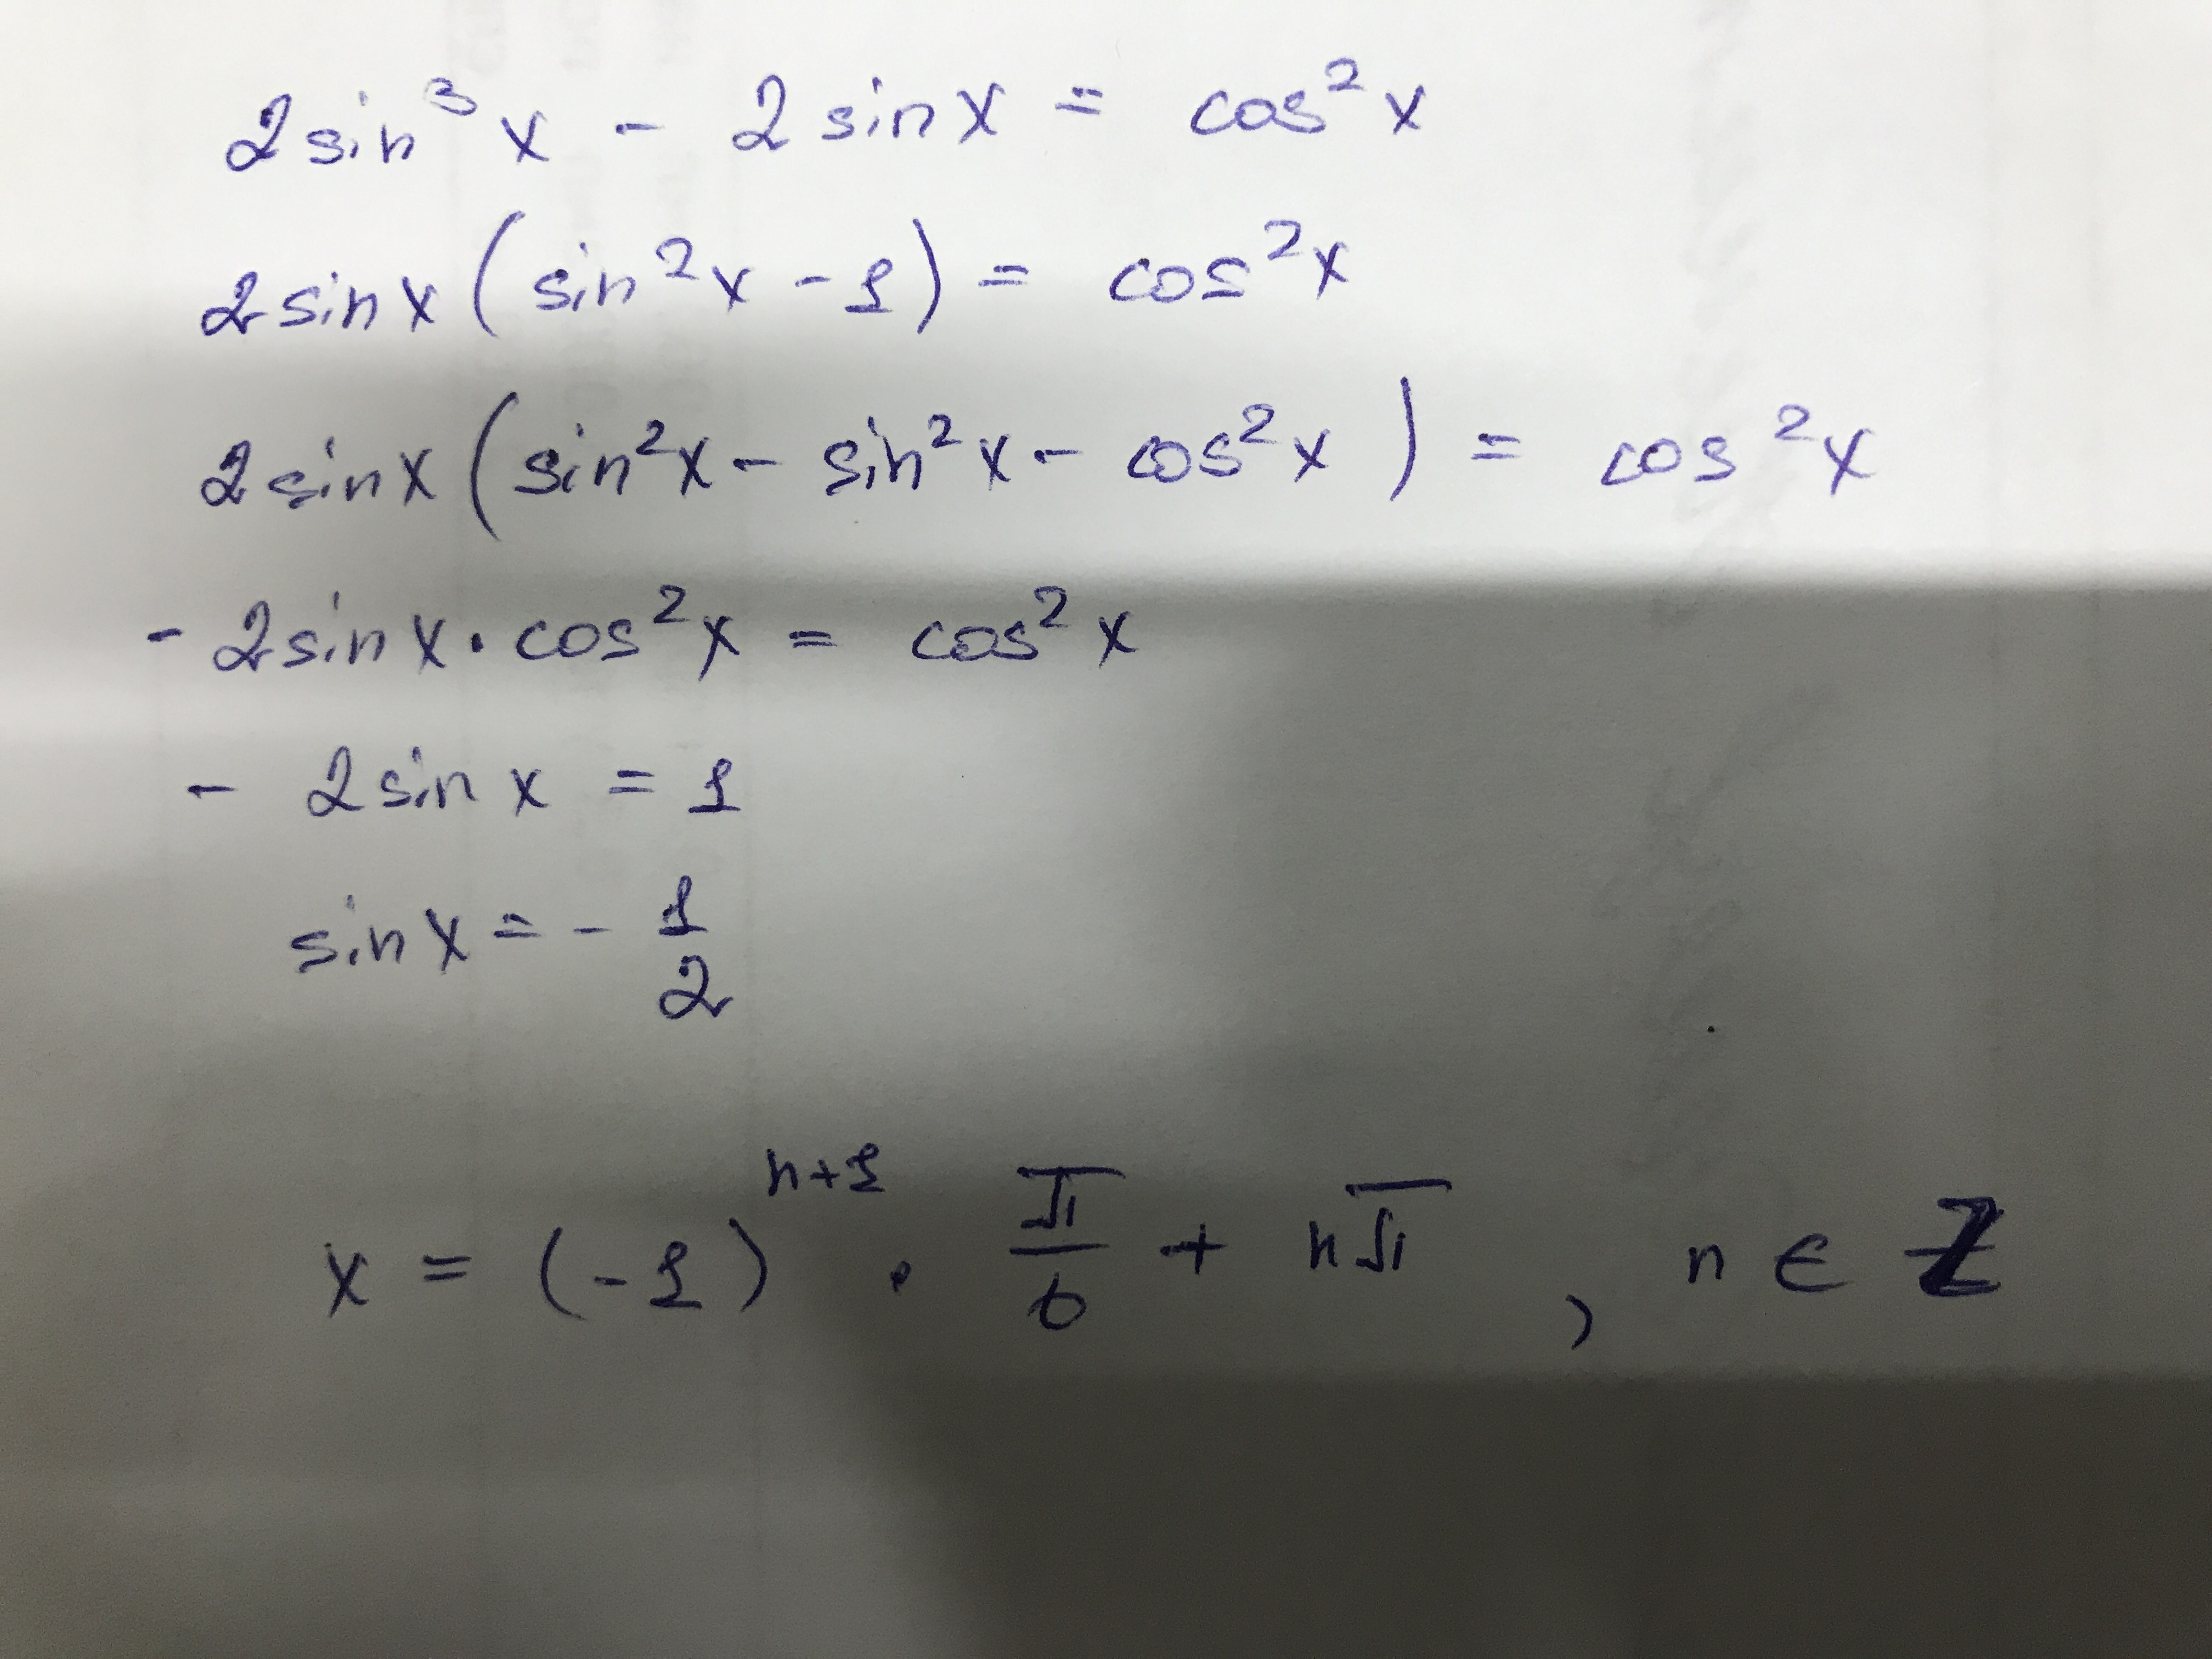 2sin³x - 2sinx = cos²x
2sinx(sin²x - 1) = cos²x
2sinx(sin²x - sin²x - cos²x) = cos²x
- 2sinx · cos²x = cos²x
- 2sinx = 1
sinx = - 1/2
x = (-1)ⁿ⁺¹ · π/6 + nπ, n ∈ ℤ